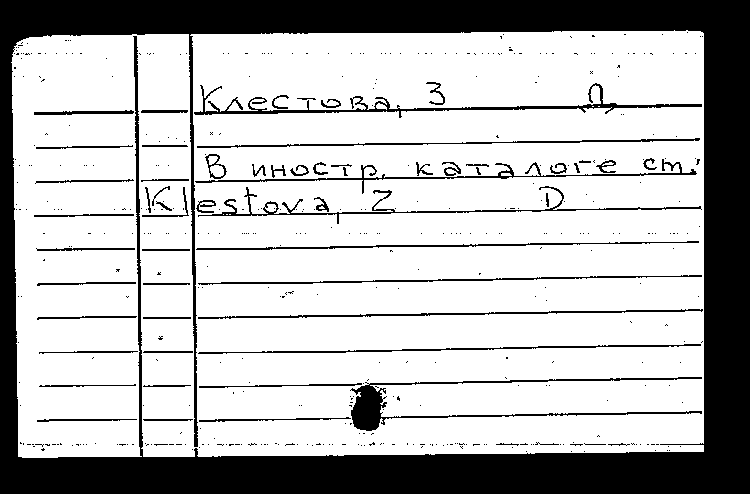 Клестова, З Д
В иностр. каталоге см.:
Klestova, Z D